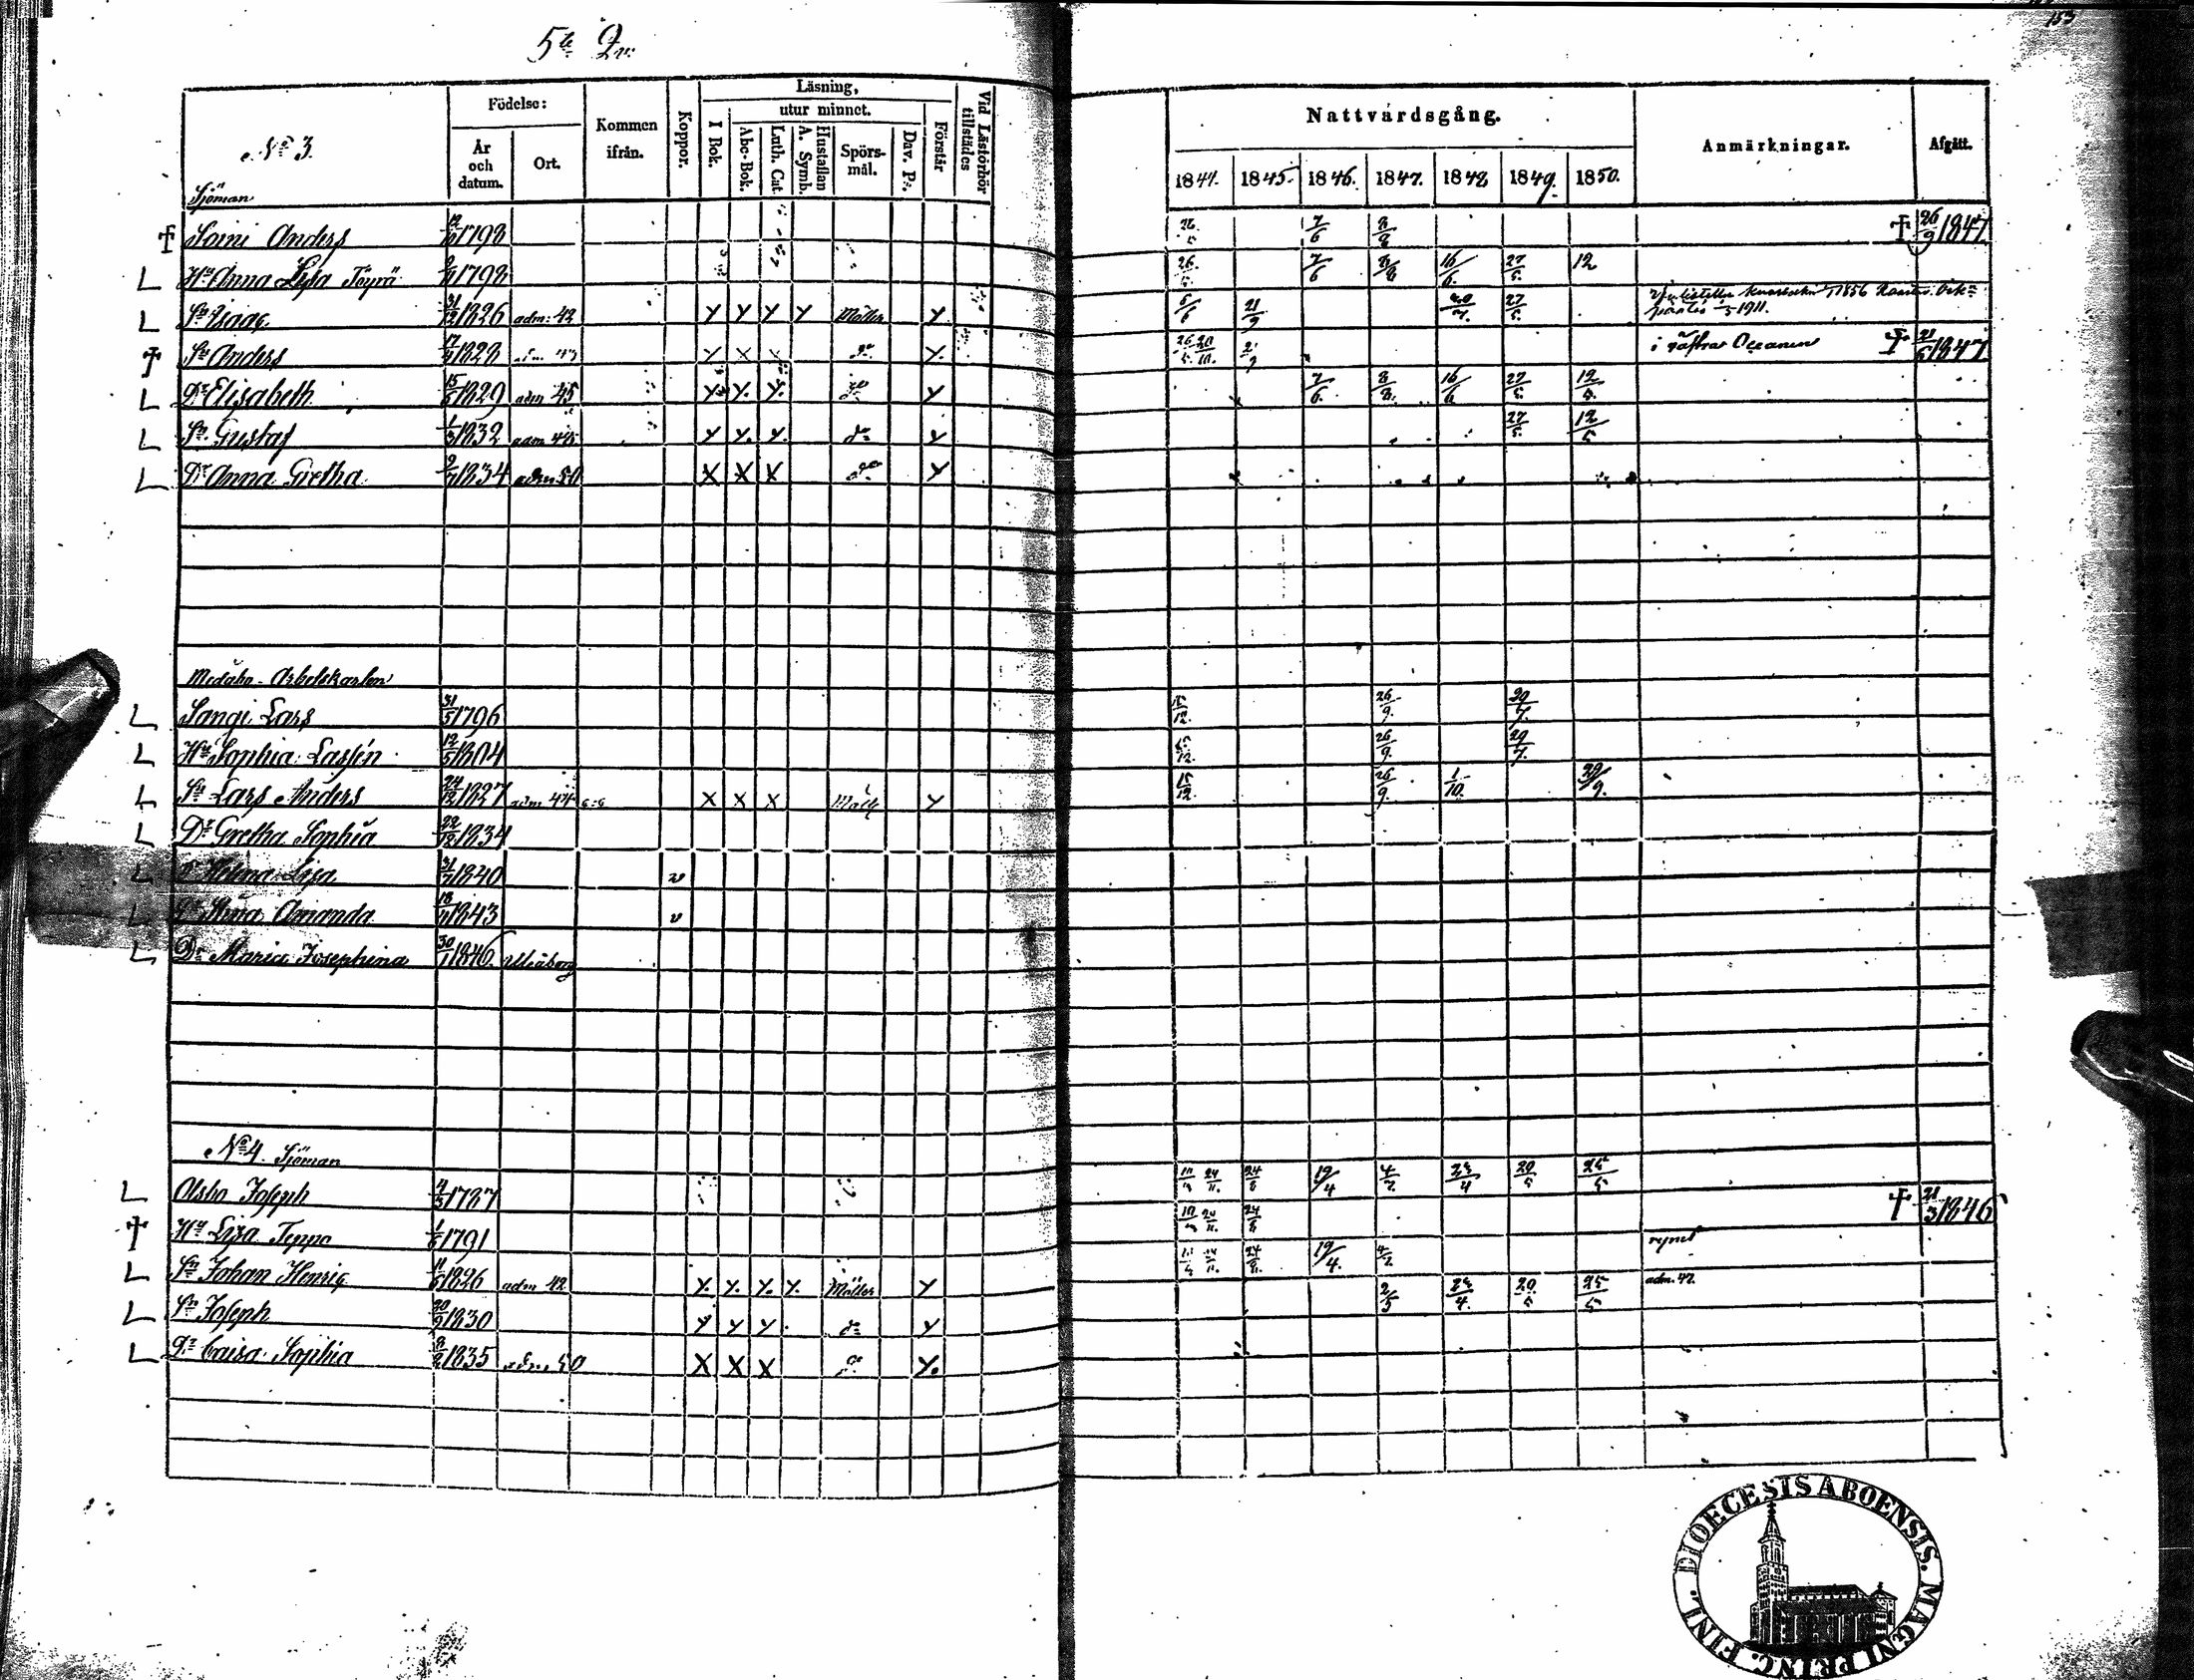 153
5te Qv.
No 3.
Födelse:
År och datum.
Ort.
Kommen ifrån.
Koppor.
Läsning,
utur minnet.
I Bok.
Abc-Bok.
Luth. Cat.
Hustaflan A. Symb.
Spörsmål.
Dav. Ps.
Förstår
Vid Läsförhör tillstädes
Nattvardsgång.
1844. 1845. 1846. 1847. 1848 1849. 1850.
Anmärkningar.
Afgått.
Sjöman
† Soini Anders 1798 7/6 8/8 † 26/9 1847
L Hu Anna Lisa Töyrä 1798 26/5 7/6 8/8 16/6 27/5 12
L Sn Isaac 31/12 1826 adm: 42 Y Y Y Y Möller Y. 6/6 21/9 27/5 1856
1911.
† Sn Anders 1828 Y X X do Y. i Oceanen † 21/5 1847
L Dr Elisabeth 15/5 1829 adm 45 Y Y. Y. do Y 7/6 8/8 16/6 27/5 12/5
L Sn Gustaf 1/3 1832 adm Y Y. Y. do Y 27/5 12/5
L Dr Anna Gretha 1834 adm 50 X X X do Y
Arbetskarlen
L Sangi Lars 31/5 1796 15/12 26/9. 29/7.
L Hu Sophia Lassén 12/5 1804 15/12 26/9. 29/7.
L Sn Lars Anders 24/12 1827 adm 44 X X X Möll Y 15/12 26/9. 1/10. 29/9.
L Dr Gretha Sophia 22/12 1834
L Dr Helena Lisa 31/7 1840 v
L Dr Stina Amanda 18/11 1843 v
L Dr Maria Josephina 30/1 1846. Uleåborg
No 4. Sjöman
L Joseph 4/3 1787 24/11. 24/8 19/4 24/4 20/5 25/5
† Hu Lisa Teppo 1791 24/11. 24/8 † 21/3 1846
L Sn Johan Henric 11/6 1826 adm 42 Y. Y. Y. Y. Möller Y 24/8 19/4. rymd
L Sn Joseph 20/9 1830 Y Y Y do Y 2/5 24/4. 20/5 25/5 adm. 47.
L Dr Caisa Sophia 8/2 1835 adm 50 X X X do Y.
DIOECESIS ABOENSIS. MAGNI PRINC. FINL.